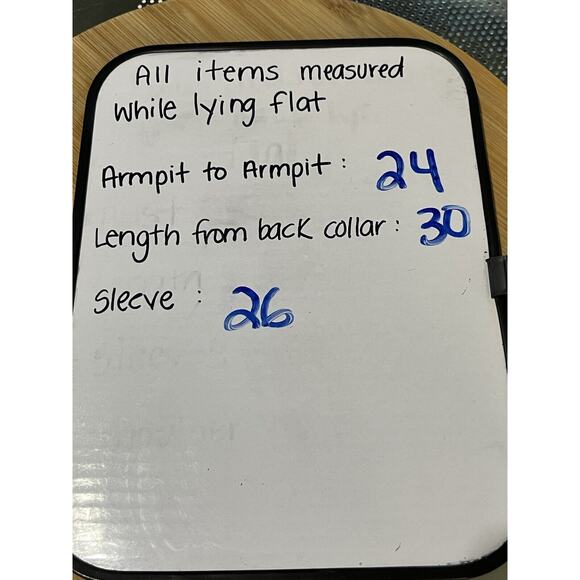 All items measured
while lying flat
Armpit to Armpit : 24
Length from back collar : 30
Sleeve : 26